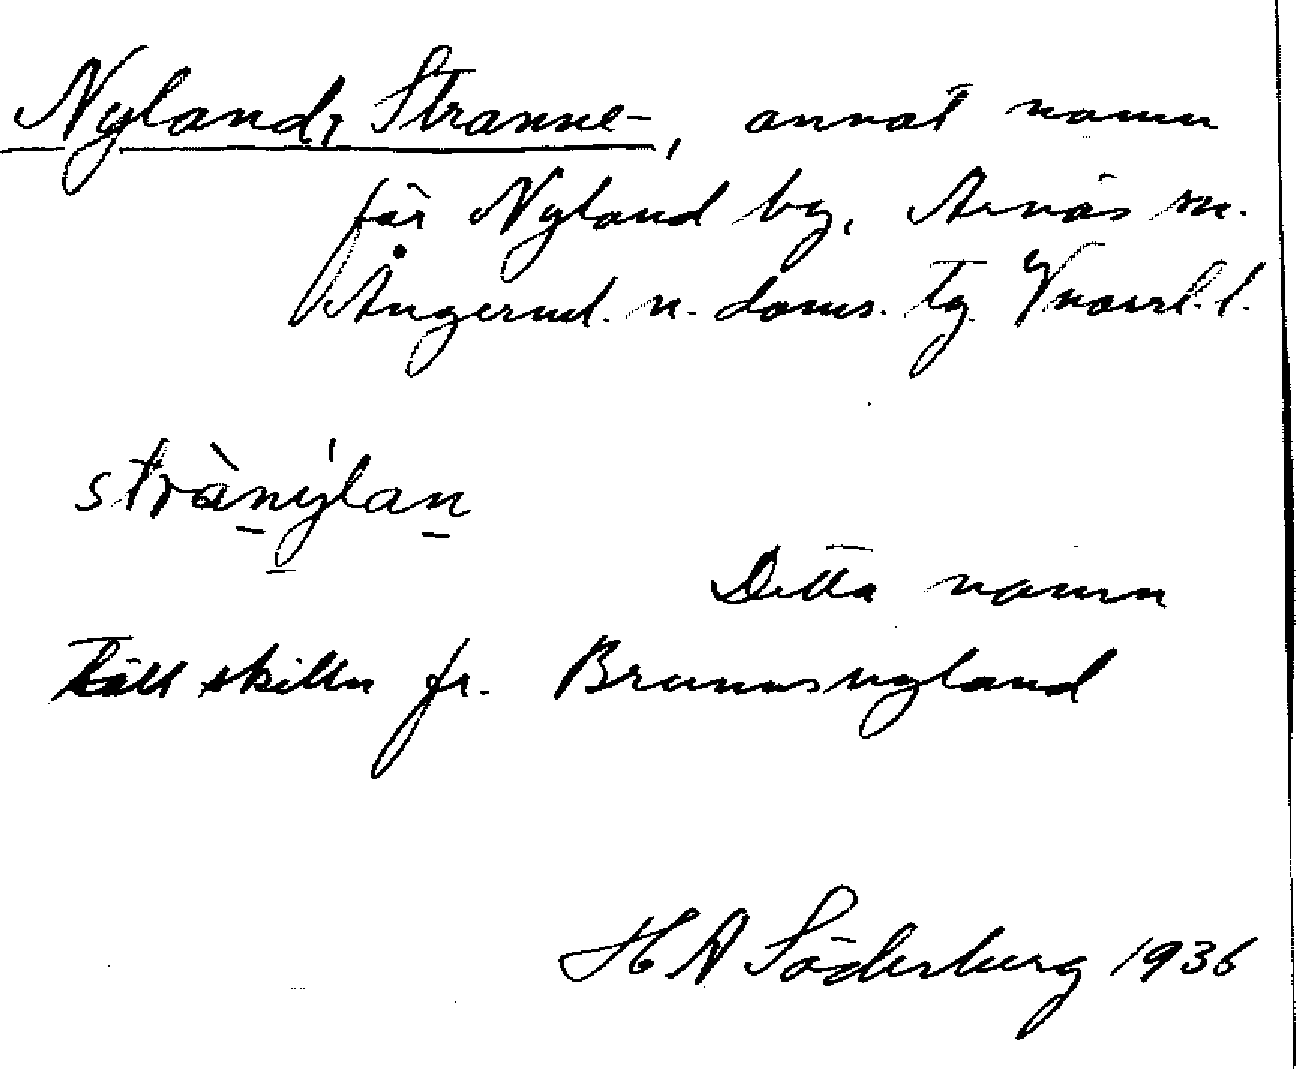 Nyland, Stranne-, annat namn
för Nyland by, Arnäs sn.
Ångerml. n. doms. tg Vnorrl. l.
strànýlan
Detta namn
till skilln fr. Brunnsnyland
H A Söderberg 1936